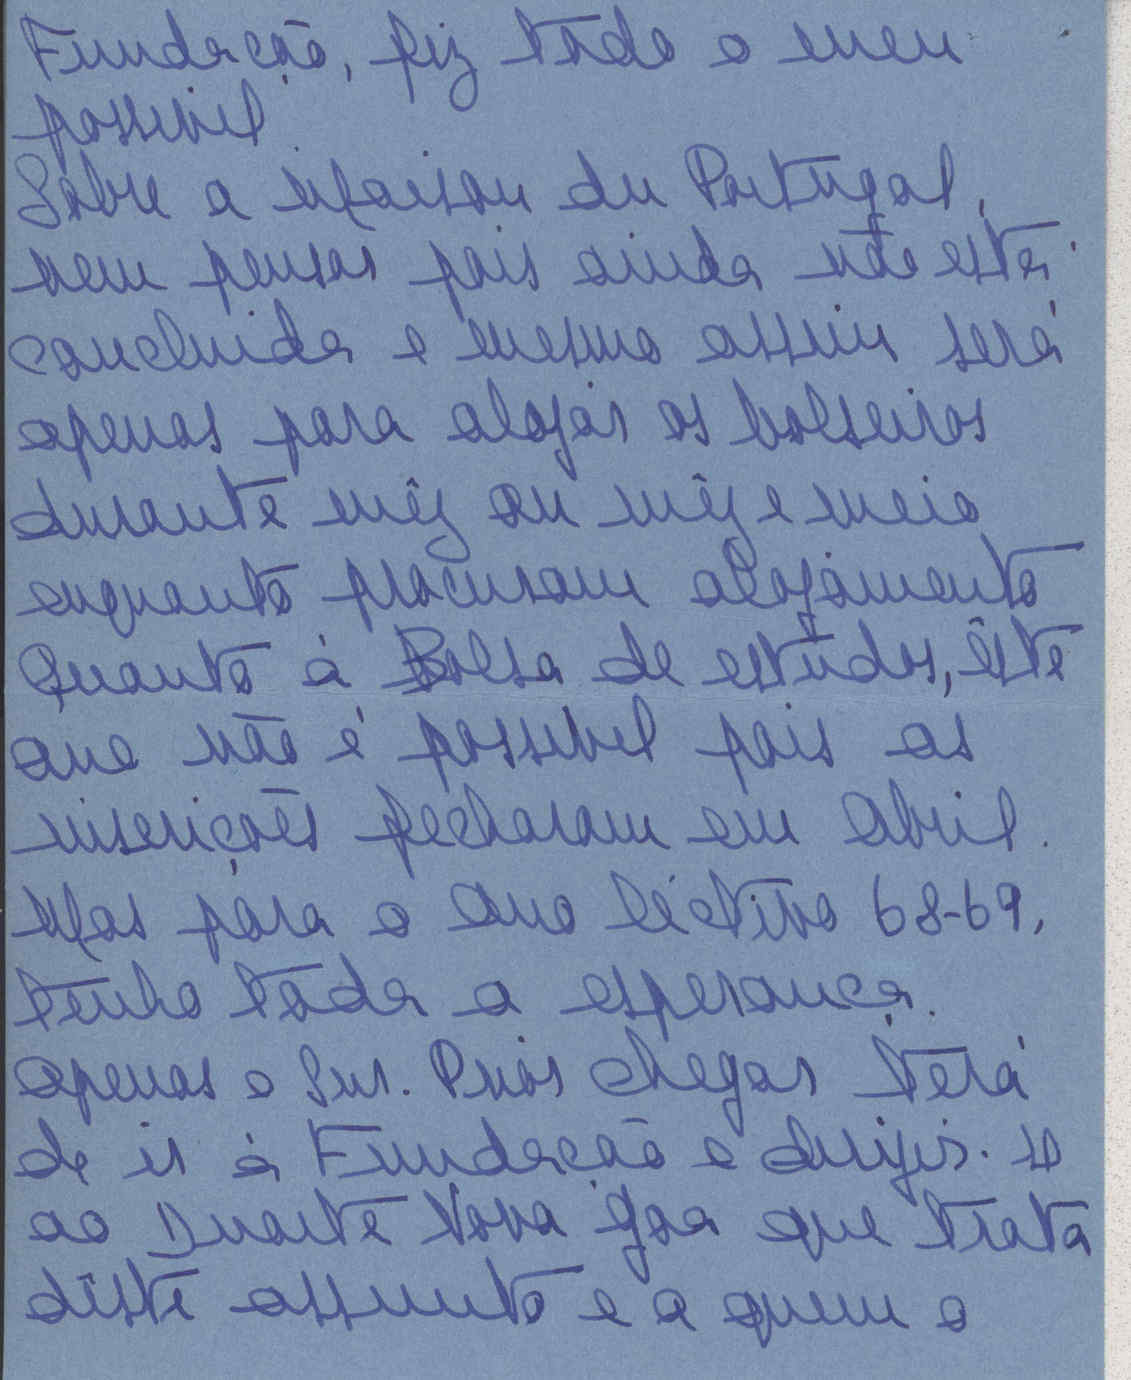 Fundação, fiz todo o meu
possivel
Sôbre a Maison du Portugal,
nem pensar pois ainda não está
concluida e mesmo assim será
apenas para alojar os bolseiros
durante mêz ou mêz e meio
enquanto procuram alojamento
Quanto à Bolsa de estudos, êste
ano não é possivel pois as
inscrições fecharam em Abril.
Mas para o Ano léctivo 68-69,
tenho tôda a esperança.
Apenas o Snr. chegar terá
de ir à Fundação e dirigir-se
ao Duarte Nova Goa que trata
dêste assunto e a quem o